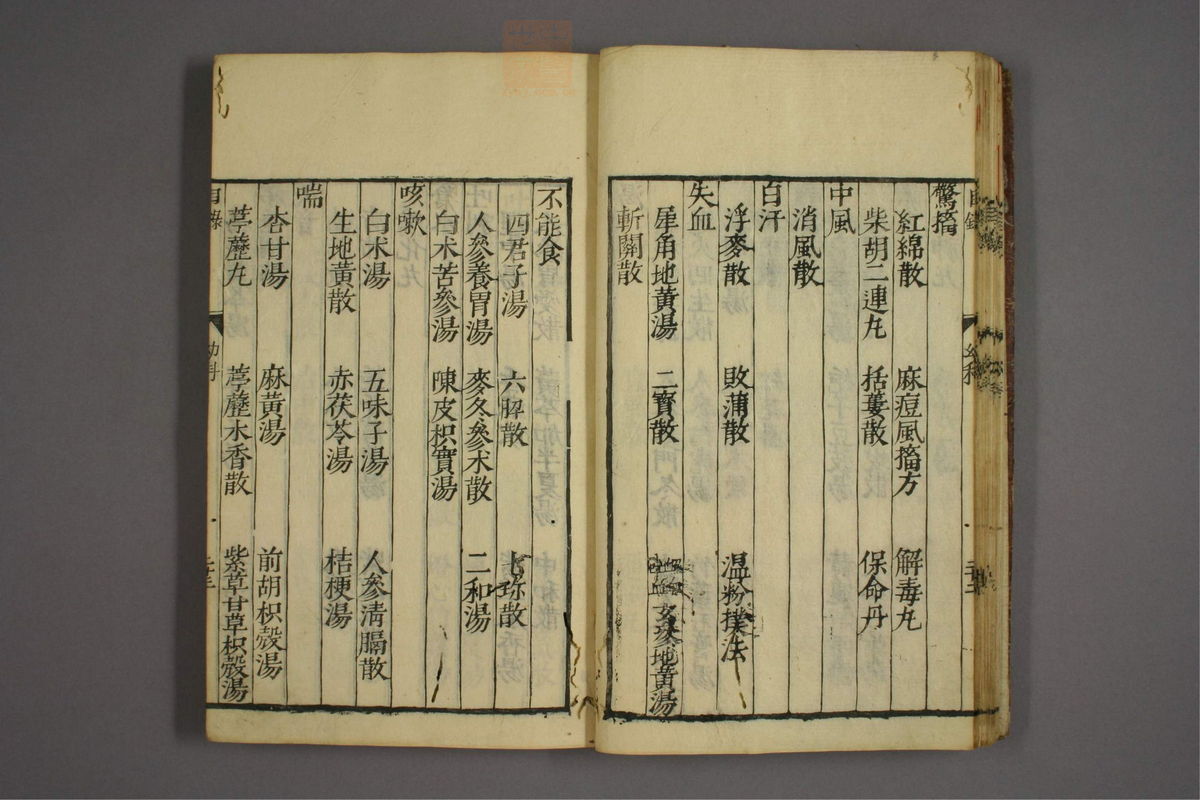 驚搐
紅綿散 麻痘風搐方 解毒丸
柴胡二連丸 括蔞散 保命丹
中風
消風散
自汗
浮麥散 敗蒲散 温粉撲法
失血
犀角地黃湯 二寳散 地黃湯
斬關散
不能食
四君子湯 六脾散 七珎散
人參養胃湯 麥冬參术散 二和湯
白术苦參湯 陳皮枳實湯
咳嗽
白术湯 五味子湯 人參清膈散
生地黃散 赤茯苓湯 桔梗湯
喘
杏甘湯 麻黃湯 前胡枳殼湯
葶藶丸 葶藶木香散 紫草甘草枳殼湯
目錄 幼科